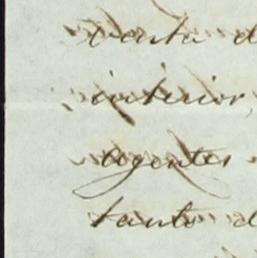 venta d
interior,
agentes
tanto d